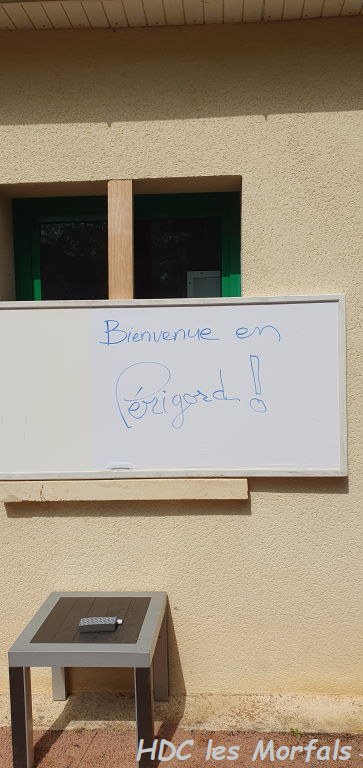 Bienvenue en
Périgord !
HDC les Morfals